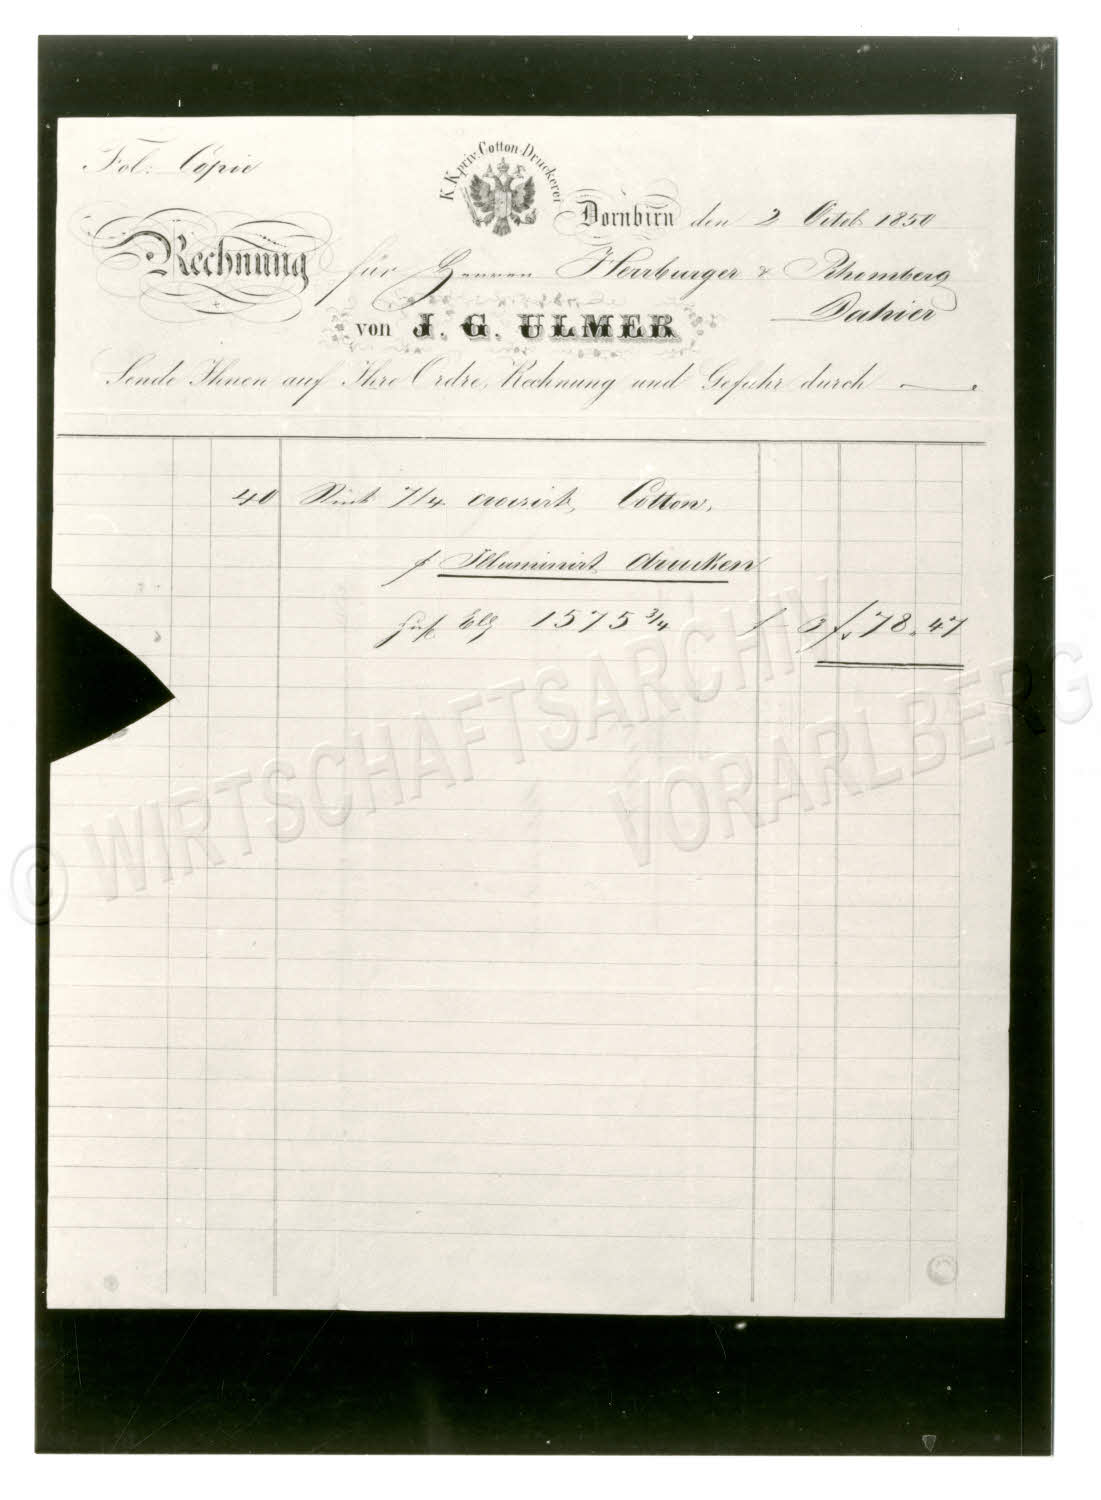 Fol: Copie
K.K. priv. Cotton-Druckerei
Dornbirn den 2 Octob 1850
Rechnung für Herren Herrburger & Rhomberg
Dahier
von J. G. ULMER
Sende Ihnen auf Ihre Ordre, Rechnung und Gefahr durch
40 Stück 7/4 croisirt, Cotton,
Illuminirt drucken
1575 3/4 3 f. 78.47
© WIRTSCHAFTSARCHIV VORARLBERG